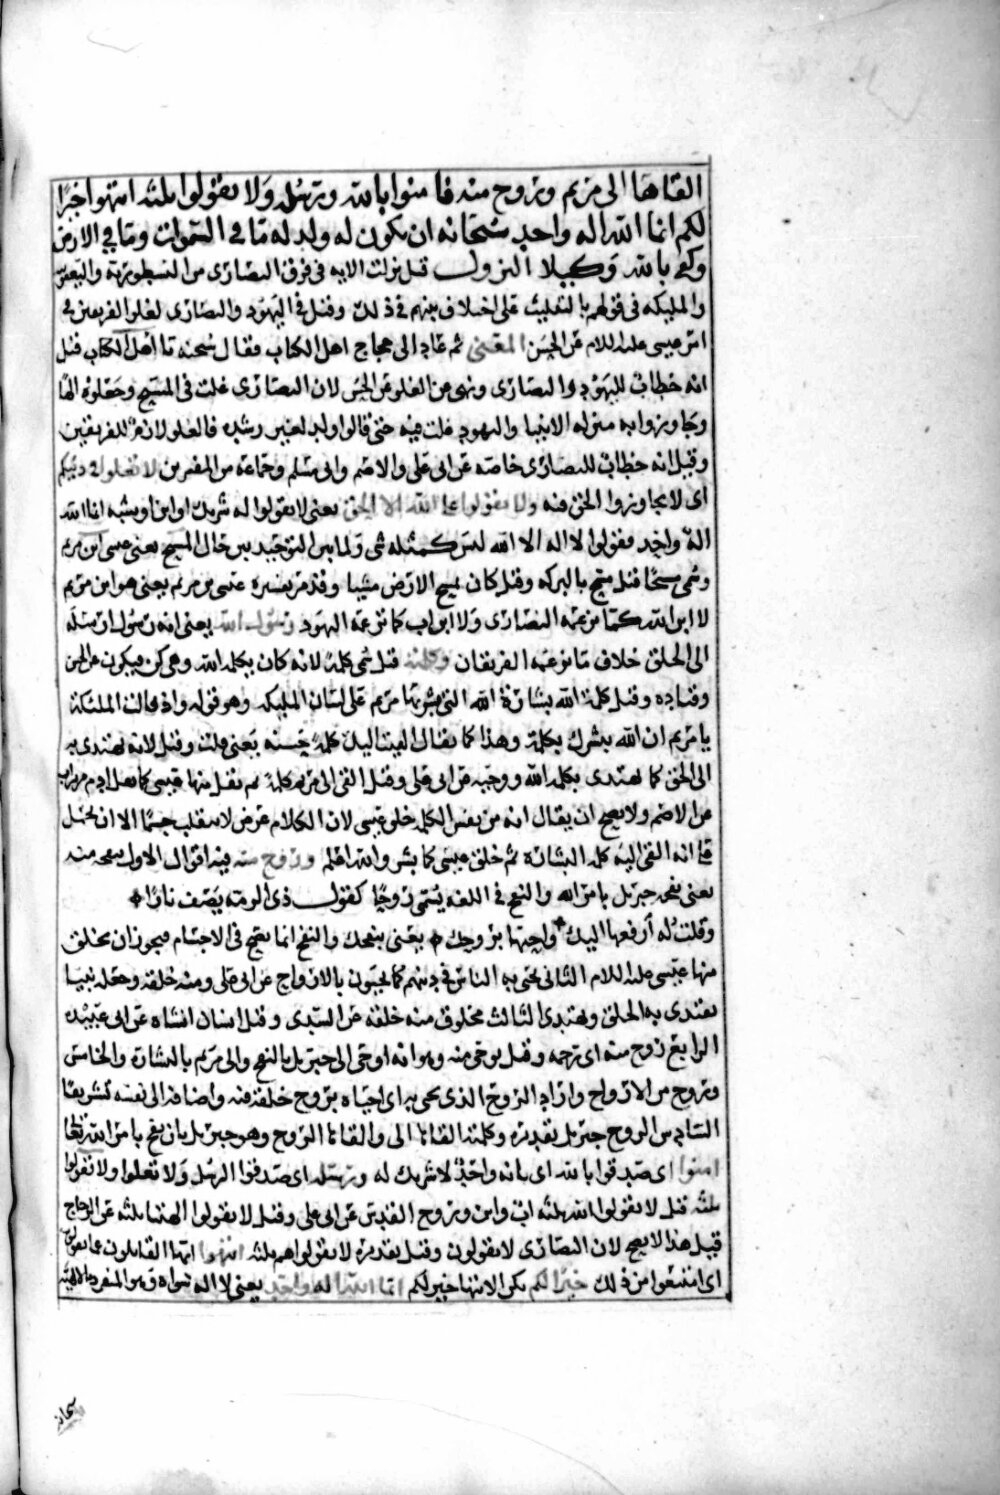 القاها الى مريم وروح منه فامنوا بالله ورسله ولا تقولوا ثلثة انتهوا خيرًا
لكم انما الله اله واحد سبحانه ان يكون له ولد له ما في السموات وما في الارض
وكفى بالله وكيلا النزول قيل نزلت الايه في فرق النصارى من النسطورية واليعقوبية
والملكيه في قولهم بالتثليث على اختلاف بينهم في ذلك وقيل في اليهود والنصارى لغلو الفريقين في
امر عيسى عليه السلام عن الحسن المعنى ثم عاد الى حجاج اهل الكتاب فقال سبحنه يا اهل الكتاب قيل
انه خطاب لليهود والنصارى ونهى عن الغلو عن الحسن لان النصارى غلت في المسيح وجعلوه الها
وجاوزوا به منزله الانبيا واليهود غلت فيه حتى قالوا ولد لغير رشده فالغلو لازم للفريقين
وقيل انه خطاب للنصارى خاصه عن ابي علي والاصم وابي مسلم وجماعه من المفسرين لا تغلوا في دينكم
اى لا تجاوزوا الحق فيه ولا تقولوا على الله الا الحق يعنى لا تقولوا له شريك او ابن او شبه انما الله
اله واحد فقولوا لا اله الا الله ليس كمثله شى ولما بين التوحيد بين حال المسيح يعنى عيسى ابن مريم
وسمى مسيحًا قيل مسح بالبركه وقيل كان يمسح الارض مشيا وقد مر تفسيره عيسى بن مريم يعنى هو ابن مريم
لا ابن الله كما تزعمه النصارى ولا ابن اب كما تزعمه اليهود رسول الله يعنى انه رسول ارسله
الى الخلق خلاف ما يزعمه الفريقان وكلمته قيل سمى كلمة لانه كان بكلمه الله وهى كن فيكون عن الحسن
وقتاده وقيل كلمة الله بشارة الله التى بشر بها مريم على لسان المليكه وهو قوله واذ قالت الملئكة
يا مريم ان الله يبشرك بكلمة وهذا كما يقال القيت اليك كلمة حسنه بمعنى قلت وقيل لانه يهتدى به
الى الحق كما يهتدى بكلمه الله ووحيه عن ابى على وقيل القى الى مريم كلمة ثم نقل منها عيسى كما نقل ادم من تراب
عن الاصم ولا يصح ان يقال انه من نفس الكلمه خلق عيسى لان الكلام عرض لا ينقلب جسمًا الا ان يحمل
على انه القى اليه كلمه البشارة ثم خلق عيسى كما بشر والله اعلم وروح منه فيه اقوال الاول نفخه منه
يعنى نفخ جبريل بامر الله والنفخ في اللغه يسمى روحًا كقول ذى الرمه يصف نارًا
وقلت له ارفعها اليك واحيها بروحك يعنى بنفخك والنفخ انما يصح في الاجسام فيجوز ان يخلق
منها عيسى عليه السلام الثانى يحيى به الناس في دينهم كما يحيون بالارواح عن ابى على ومنه خلقه وجعله نبيا
يقتدى به الخلق ويهتدى الثالث مخلوق منه خلقه عن السدى وقيل انسان انشاه عن ابى عبيده
الرابع روح منه اى رحمه وقيل بوحى منه وهو انه اوحى الى جبريل بالنفخ والى مريم بالبشارة والخامس
وروح من الارواح واراد الروح الذى يحيى به اى احياه بروح خلقه فيه واضافه الى نفسه تشريفا
السادس الروح جبريل تقديره وكلمته القاها الى والقاها الروح وهو جبريل بان نفخ بامر الله تعالى
امنوا اى صدقوا بالله اى بانه واحد لا شريك له ورسله اى صدقوا الرسل ولا تغلوا ولا تقولوا
ثلثه قيل لا تقولوا الله ثلثه اب وابن وروح القدس عن ابى على وقيل لا تقولوا الهتنا ثلثه عن الزجاج
قيل هذا لا يصح لان النصارى لا يقولون وقيل تقديره لا تقولوا هم ثلثه انتهوا ايها القائلون عما تقولون
اى امتنعوا من ذلك خيرًا لكم يكن الانتها خير لكم انما الله اله واحد يعنى لا اله سواه وهو المنفرد بالالهية
سبحانه